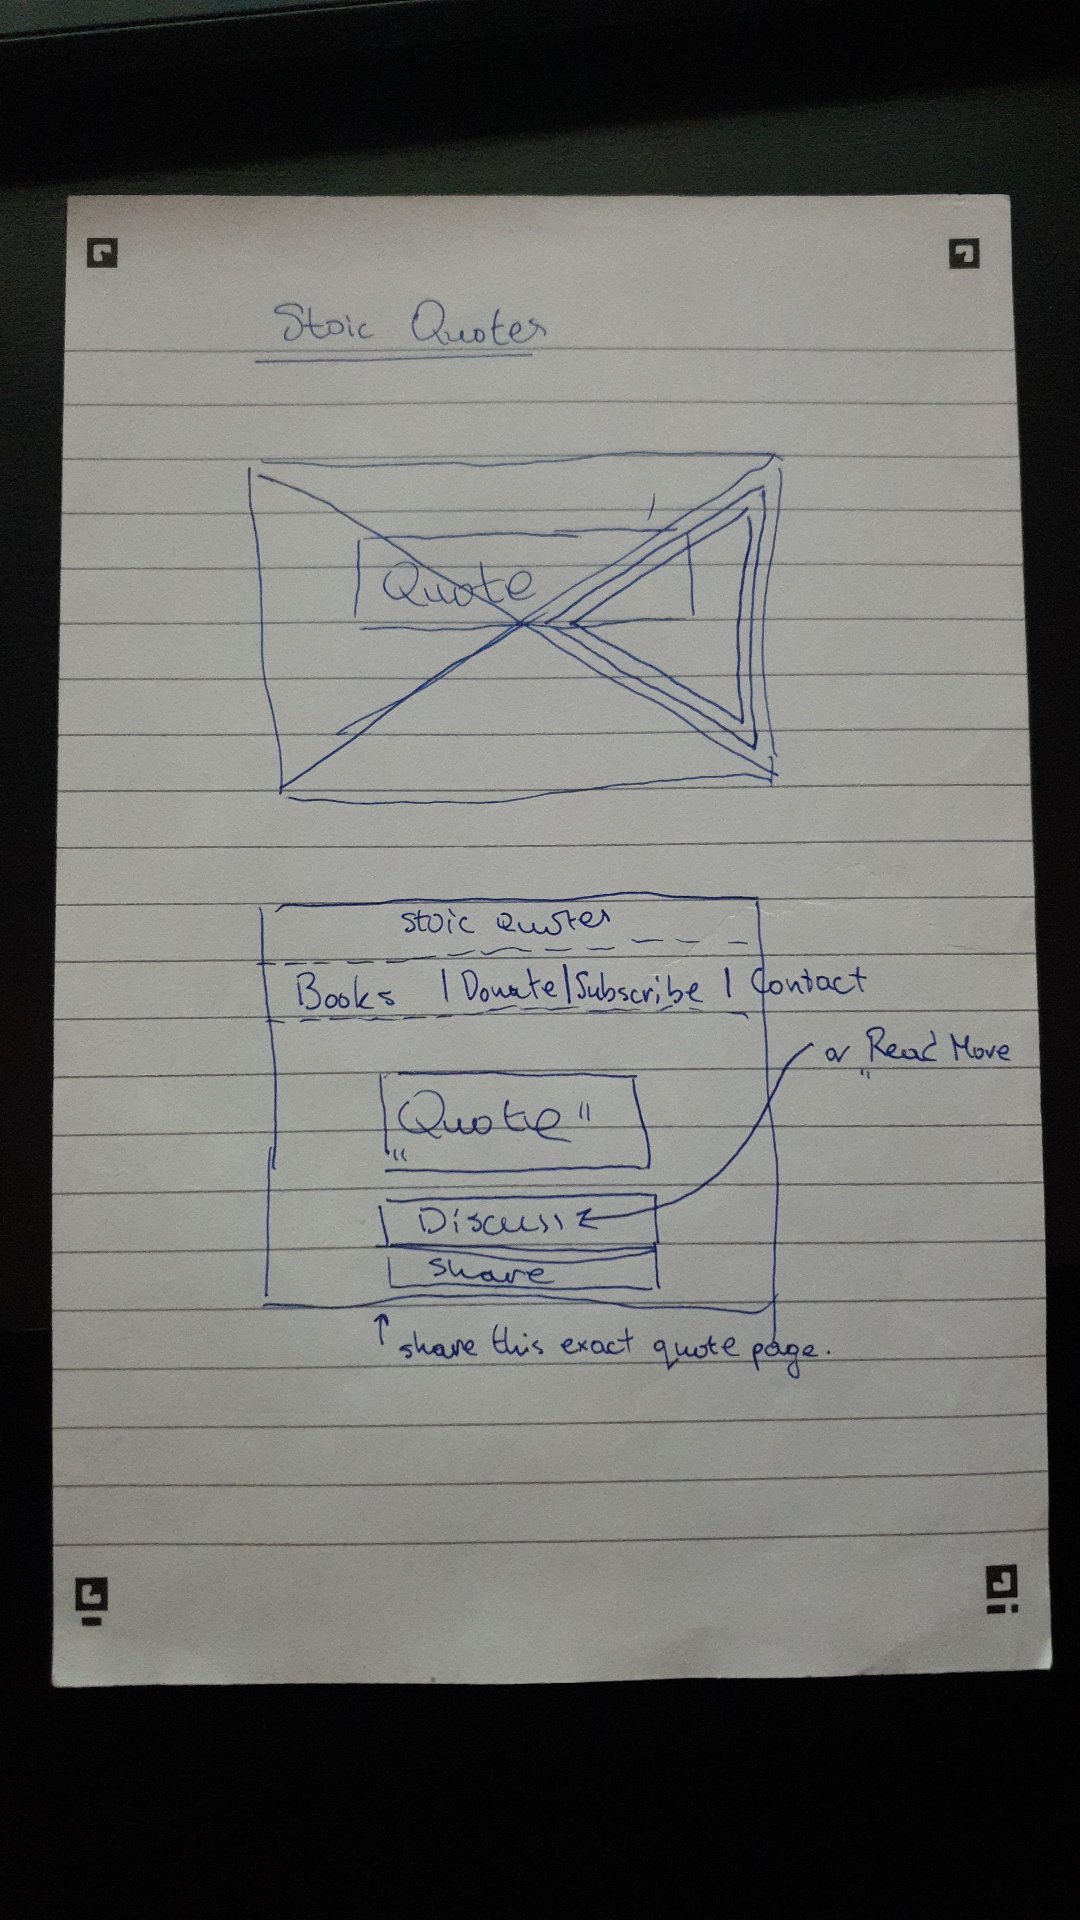 Stoic Quotes
Quote
Stoic Quotes
Books | Donate | Subscribe | Contact
or "Read More
"Quote"
Discuss
Share
↑ share this exact quote page.